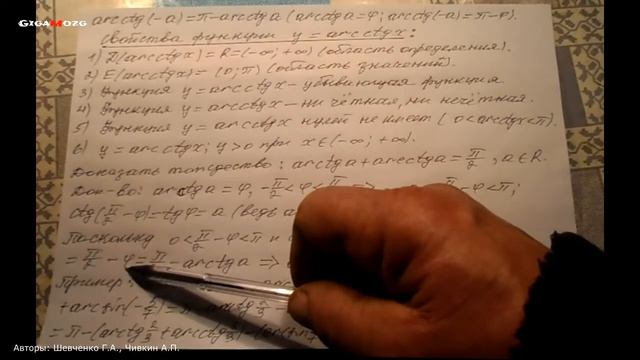 GIGAMOZG
arcctg(-a)=π-arcctga (arcctga=φ; arcctg(-a)=π-φ).
Свойства функции y=arcctgx:
1) D(arcctgx)=R=(-∞;+∞) (область определения).
2) E(arcctgx)=(0;π) (область значений).
3) Функция y=arcctgx-убывающая функция
4) Функция y=arcctgx-ни чётная, ни нечётная.
5) Функция y=arcctgx нулей не имеет (0<arcctgx<π).
6) y=arcctgx; y>0 при x∈(-∞;+∞).
Доказать тождество: arctga+arcctga=π/2, a∈R.
Док-во: arctga=φ, -π/2<φ<π/2 => π/2-φ<π;
ctg(π/2-φ)=tgφ=a (ведь a
Поскольку 0<π/2-φ<π и
=π/2-φ=π/2-arctga =>
Пример:
+arcsin(-
=π-(arcctg
Авторы: Шевченко Г.А., Чивкин А.П.